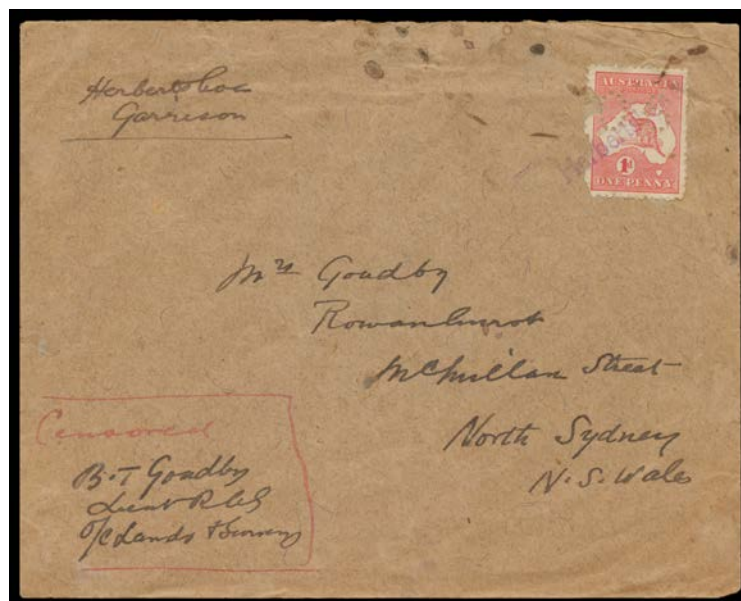 Herbertshöe
Garrison
AUSTRALIA
1d
ONE PENNY
Mrs Goadby
Rowanhurst
McMillan Street
North Sydney
N.S. Wales
Censored
B.T Goadby
Lieut
O/C Lands & Surveys